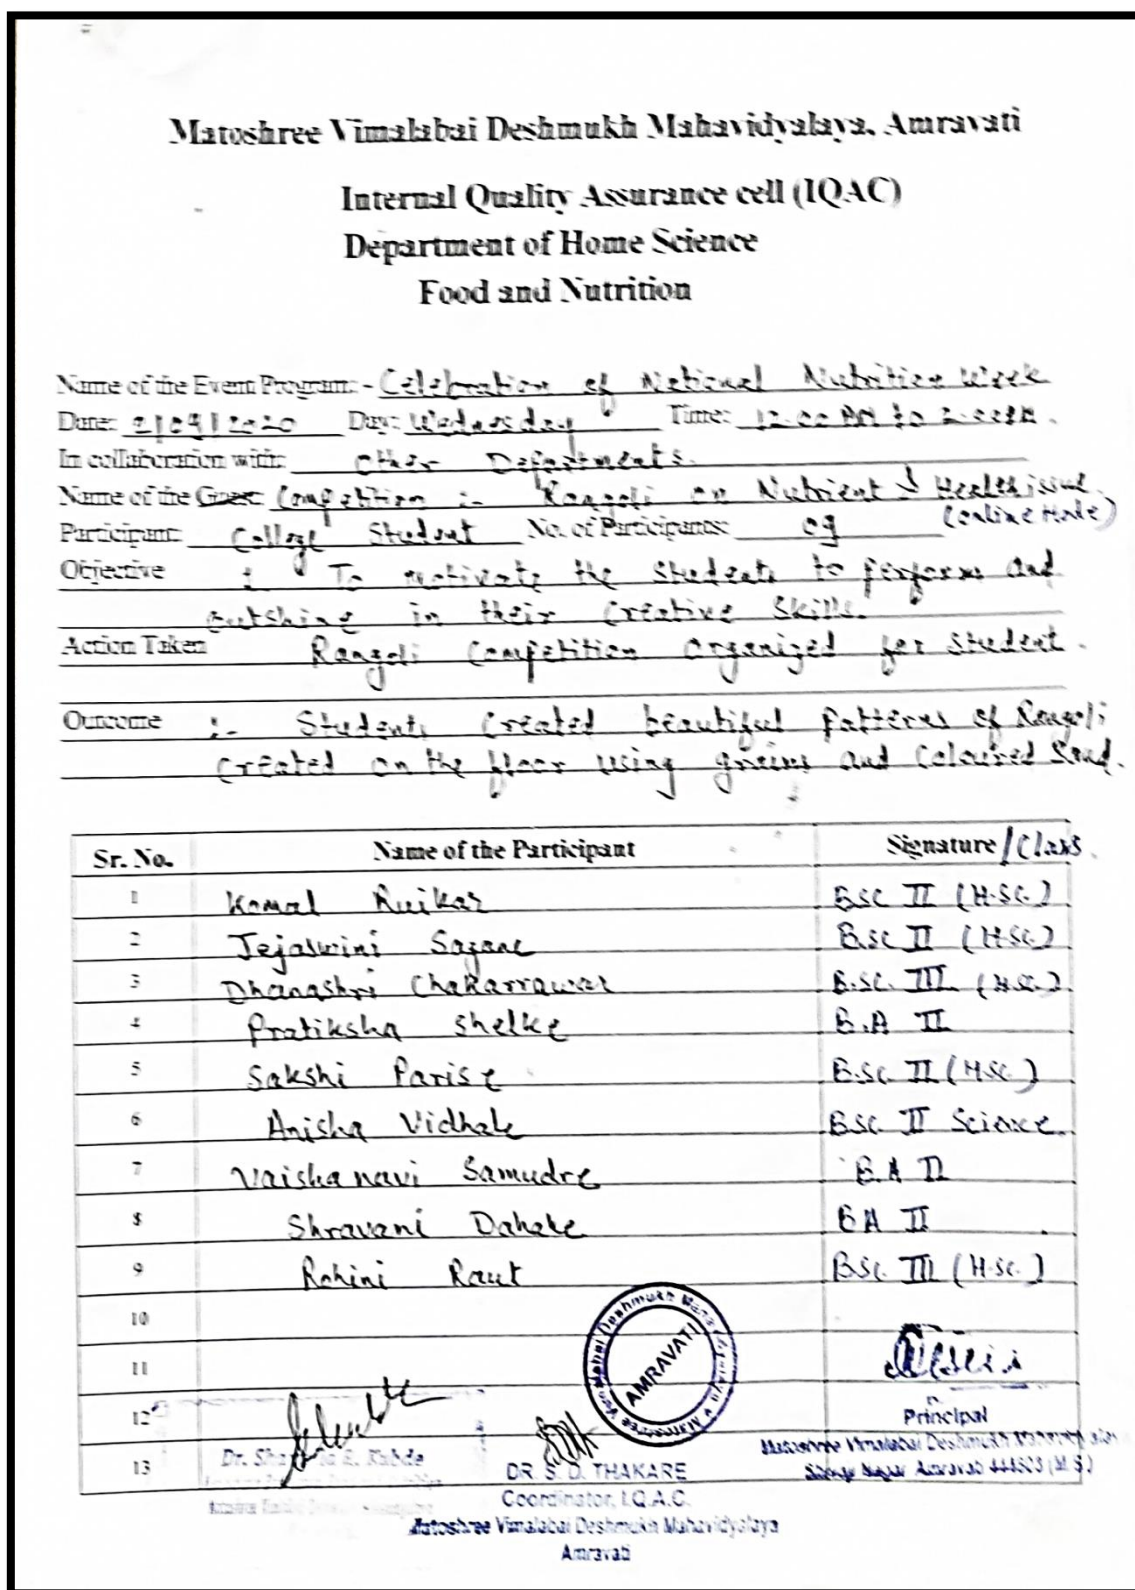 Matoshree Vimalabai Deshmukh Mahavidyalaya, Amravati
Internal Quality Assurance cell (IQAC)
Department of Home Science
Food and Nutrition
Name of the Event Program: - Celebration of National Nutrition Week
Date: 2/09/2020 Day: Wednesday Time: 12.00 PM to 2.00PM.
In collaboration with: Other Departments.
Name of the Guest: Competition :- Rangoli on Nutrient & Health issue.
(online Mode)
Participant: College Student No. of Participants: 09
Objective : To motivate the students to perform and
outshine in their Creative Skills.
Action Taken Rangoli Competition Organized for student.
Outcome :- Students Created beautiful patterns of Rangoli
Created on the floor using grains and Coloured Sand.
Sr. No. Name of the Participant Signature/Class.
1 Komal Ruikar B.Sc II (H.Sc.)
2 Tejaswini Sagane B.Sc II (H.Sc.)
3 Dhanashri Chakarrawar B.Sc. III (H.Sc.)
4 Pratiksha Shelke B.A II
5 Sakshi Parise B.Sc. II (H.Sc)
6 Anisha Vidhale BSc. II Science.
7 Vaishanavi Samudre B.A II
8 Shravani Dahake BA II
9 Rohini Raut B.Sc. III (H.Sc.)
10
11
12
13
AMRAVATI
Principal
Matoshree Vimalabai Deshmukh Mahavidyalaya
Shivaji Nagar Amravati 444603 (M.S.)
Dr. E. Kubde
DR. S. D. THAKARE
Coordinator, I.Q.A.C.
Matoshree Vimalabai Deshmukh Mahavidyalaya
Amravati